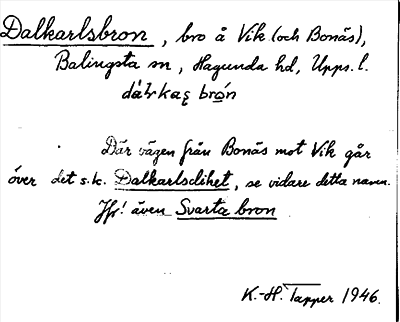 Dalkarlsbron, bro å Vik (och Bonäs),
Balingsta sn, Hagunda hd, Upps. l.
Där vägen från Bonäs mot Vik går
över det s.k. Dalkarlsdiket, se vidare detta namn.
Jfr! även Svarta bron
K.-H. Tapper 1946.